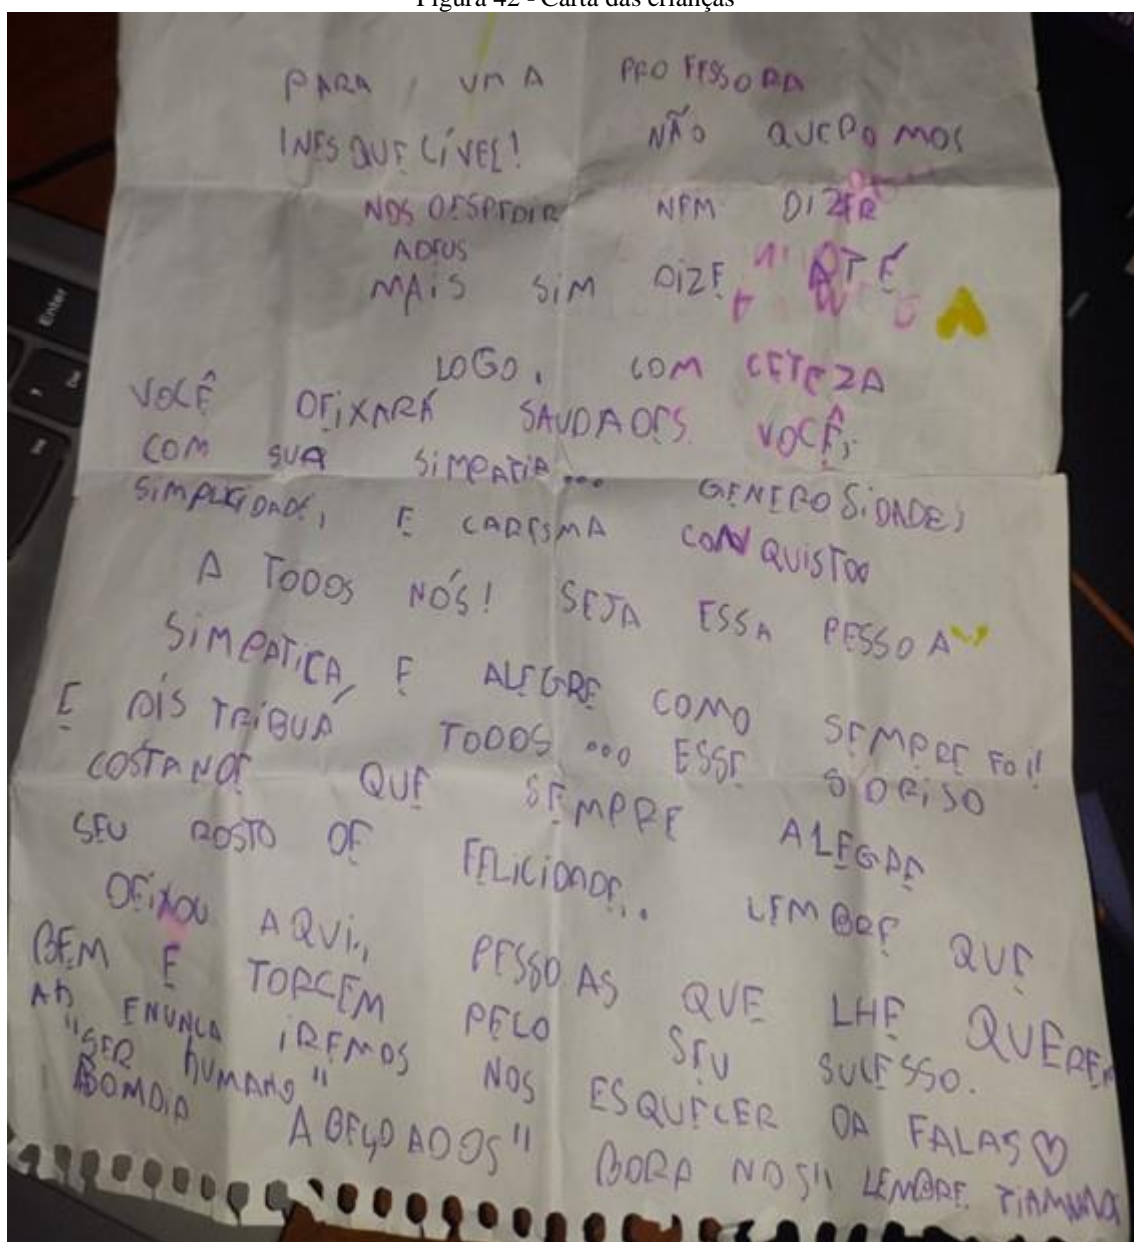 Figura 42 - Carta das crianças
PARA , UMA PROFESSORA
INESQUECÍVEL! NÃO QUEROMOS
NOS DESPEDIR NEM DIZER
ADEUS
MAIS SIM DIZE ATÉ
LOGO, COM CETEZA
VOCÊ DEIXARÁ SAUDADES. VOCÊ,
COM SUA SIMPATIA... GENEROSIDADE,
SIMPLICIDADE, E CARISMA CONQUISTOO
A TODOS NÓS! SEJA ESSA PESSOA
SIMPATICA, E ALEGRE COMO SEMPRE FOI!
E DISTRIBUÁ TODOS... ESSE SORISO
COSTANDE QUE SEMPRE ALEGRA
SEU ROSTO DE FELICIDADE... LEMBRE QUE
DEIXOU AQUI,, PESSOAS QUE LHE QUEREM
BEM E TORCEM PELO SEU SUCESSO.
AH ENUNCA IREMOS NOS ESQUECER DA FALAS
"SER HUMANO"
BOMDIA "BORA NOS" LEMBRE